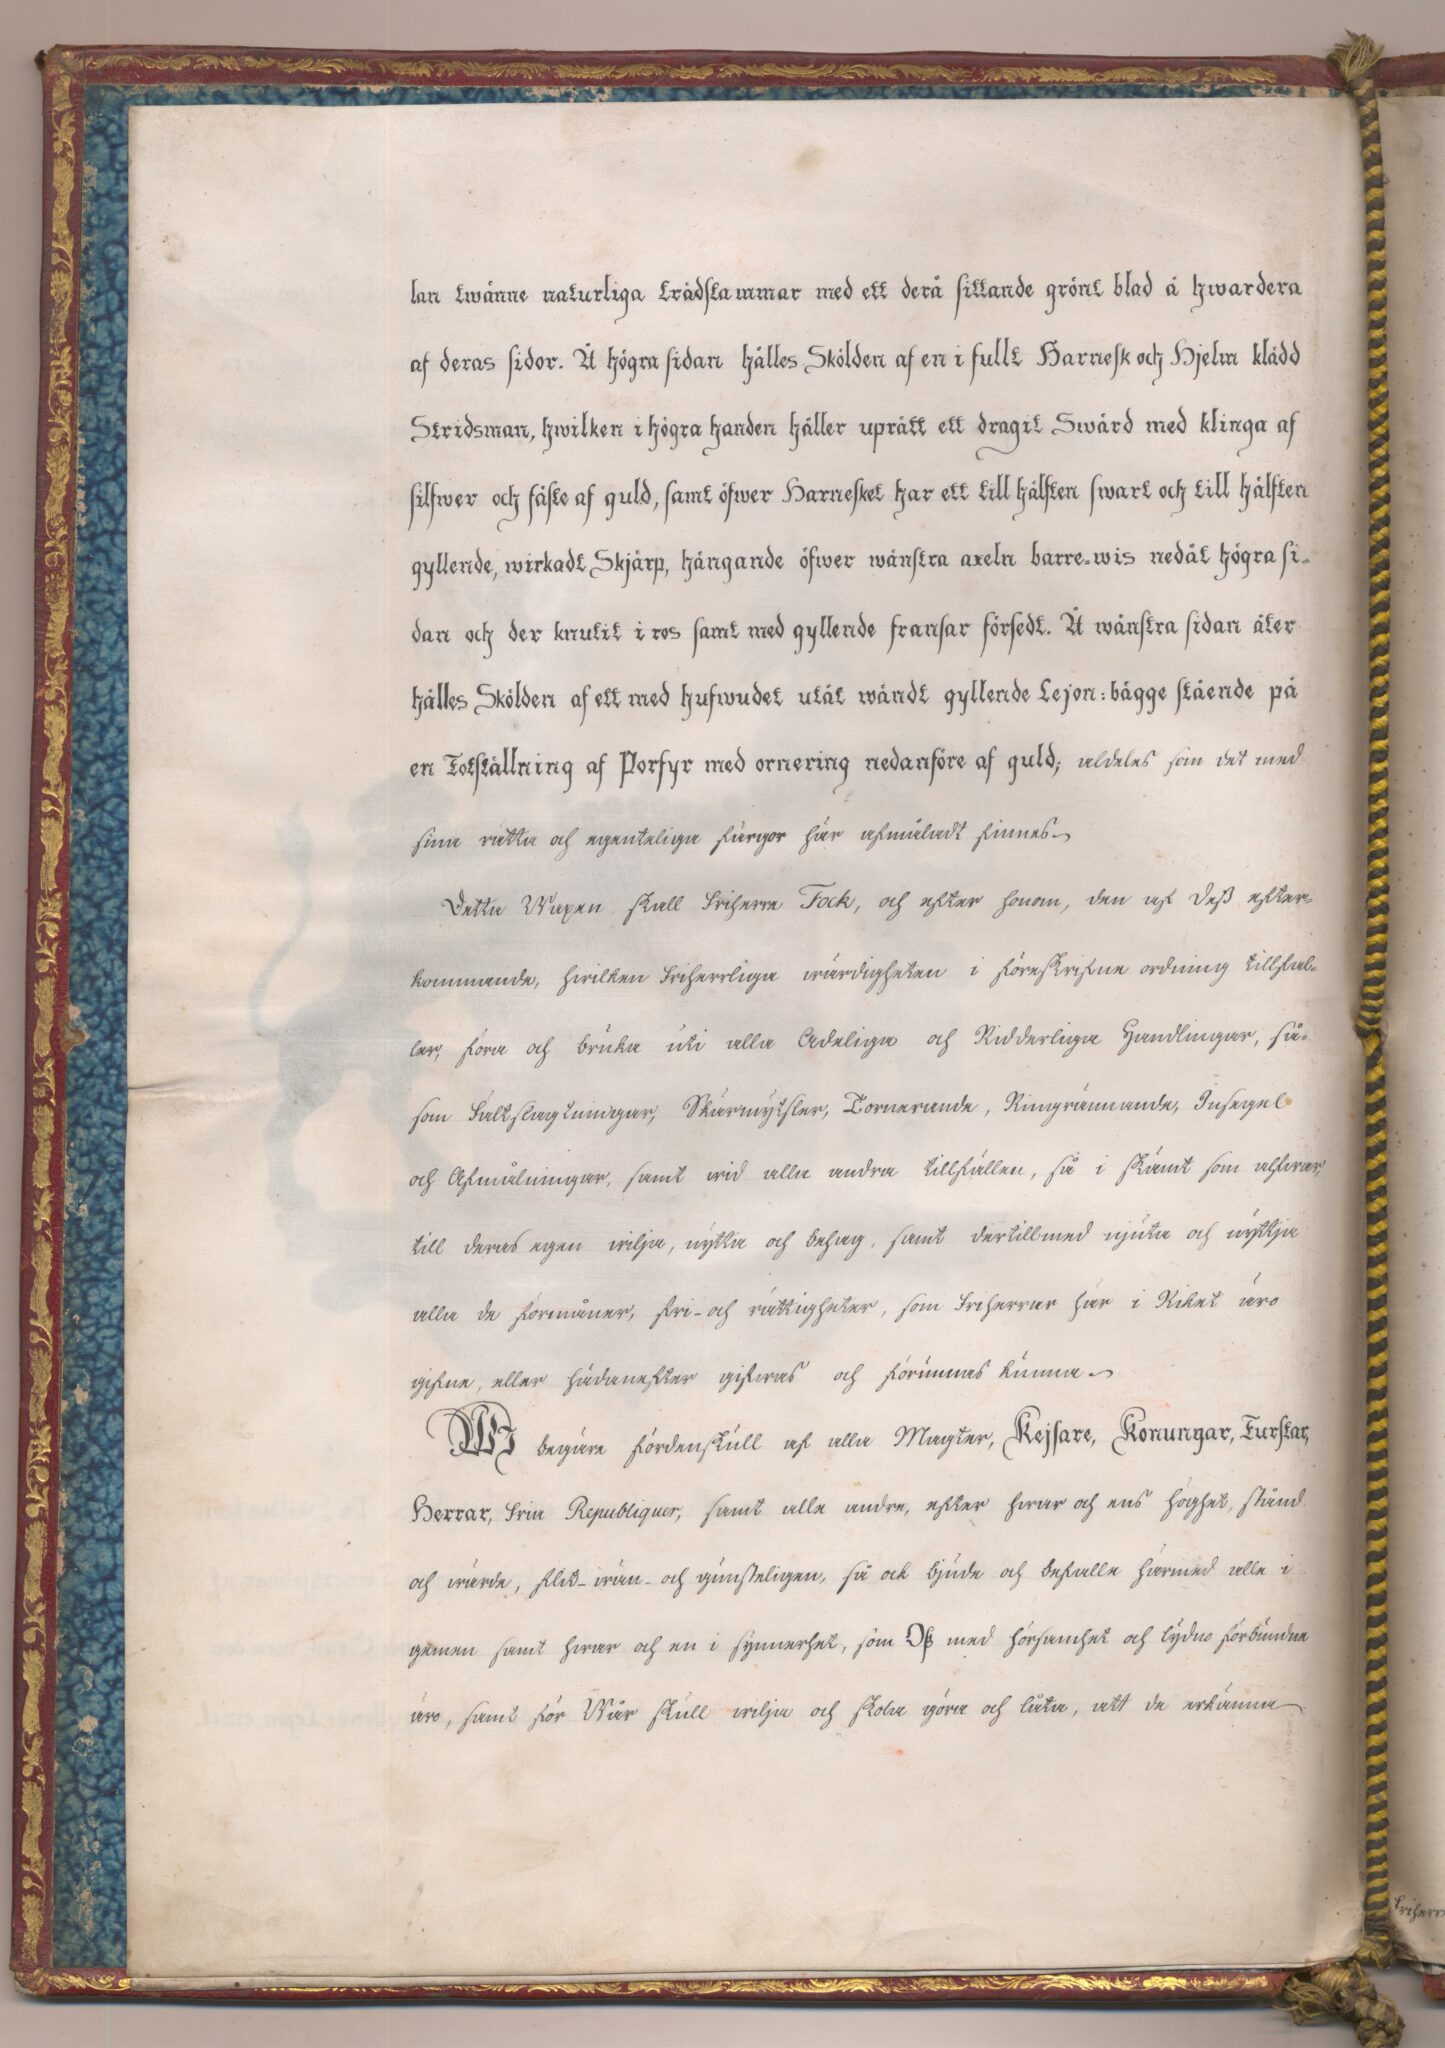 lan twänne naturliga trädstammar med ett derå sittande grönt blad å hwardera
af deras sidor. Å högra sidan hålles Skölden af en i fullt Harnesk och Hjelm klädd
Stridsman, hwilken i högra handen håller uprätt ett dragit Swärd med klinga af
silfwer och fäste af guld, samt öfwer Harnesket har ett till hälften swart och till hälften
gyllende, wirkadt Skjärp, hängande öfwer wänstra axeln barre-wis nedåt högra si-
dan och der knutit i ros samt med gyllende fransar försedt. Å wänstra sidan åter
hålles Skölden af ett med hufwudet utåt wändt gyllende Lejon: bägge stående på
en Fotställning af Porfyr med ornering nedanföre af guld; aldeles som det med
sina rätta och egenteliga färgor här afmåladt finnes.
Detta Wapen skall Friherre Fock, och efter honom, den af Deß efter-
kommande, hwilken Friherrliga wärdigheten i föreskrifne ordning tillfal-
ler, föra och bruka uti alla Adeliga och Ridderliga Handlingar, så-
som Fältslagtningar, Skärmytsler, Tornerande, Ringrännande, Insegel
och Afmålningar, samt wid alla andra tillfällen, så i skämt som alfwar,
till deras egen wilja, nytta och behag, samt dertillmed njuta och nyttja
alla de förmåner, fri- och rättigheter, som Friherrar här i Riket äro
gifne, eller hädanefter gifwas och förunnas kunna.
WI begäre fördenskull af alla Magter, Kejsare, Konungar, Furstar,
Herrar, Fria Republiquer, samt alle andre, efter hwar och ens höghet, stånd
och wärde, flit- wän- och gunsteligen, så ock bjude och befalle härmed alle i
gemen samt hwar och en i synnerhet, som Oß med hörsamhet och lydno förbundne
äro, samt för Wår skull wilja och skola göra och låta, att de erkänna
Friherr